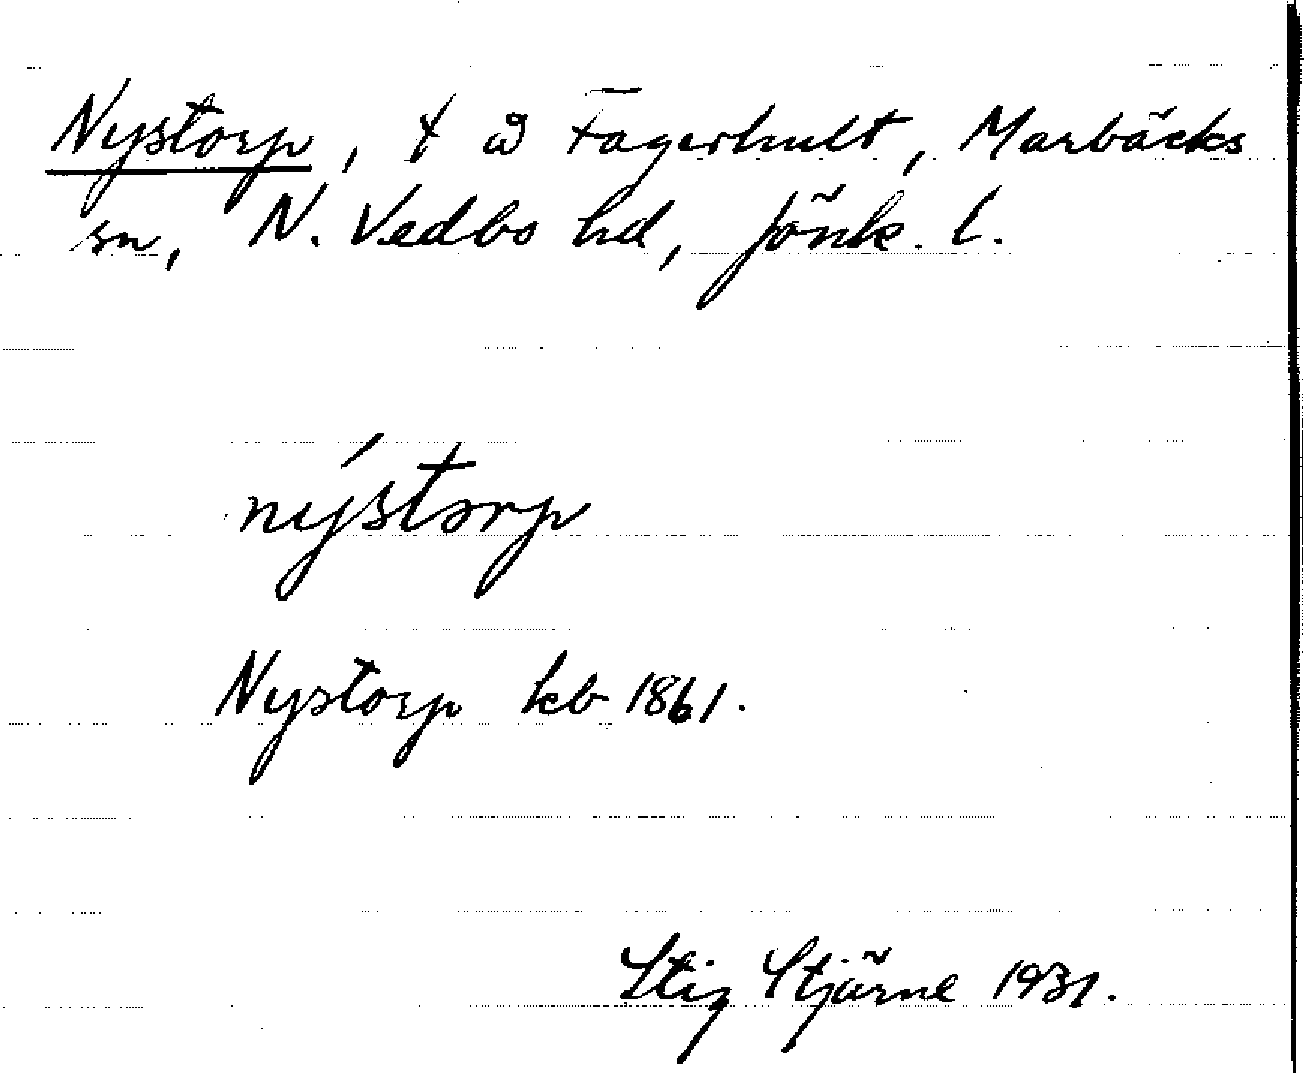 Nystorp, t å Fagerhult, Marbäcks
sn, N. Vedbo hd, Jönk. l.
nýstorp
Nystorp kb 1861.
Stig Stjärne 1931.